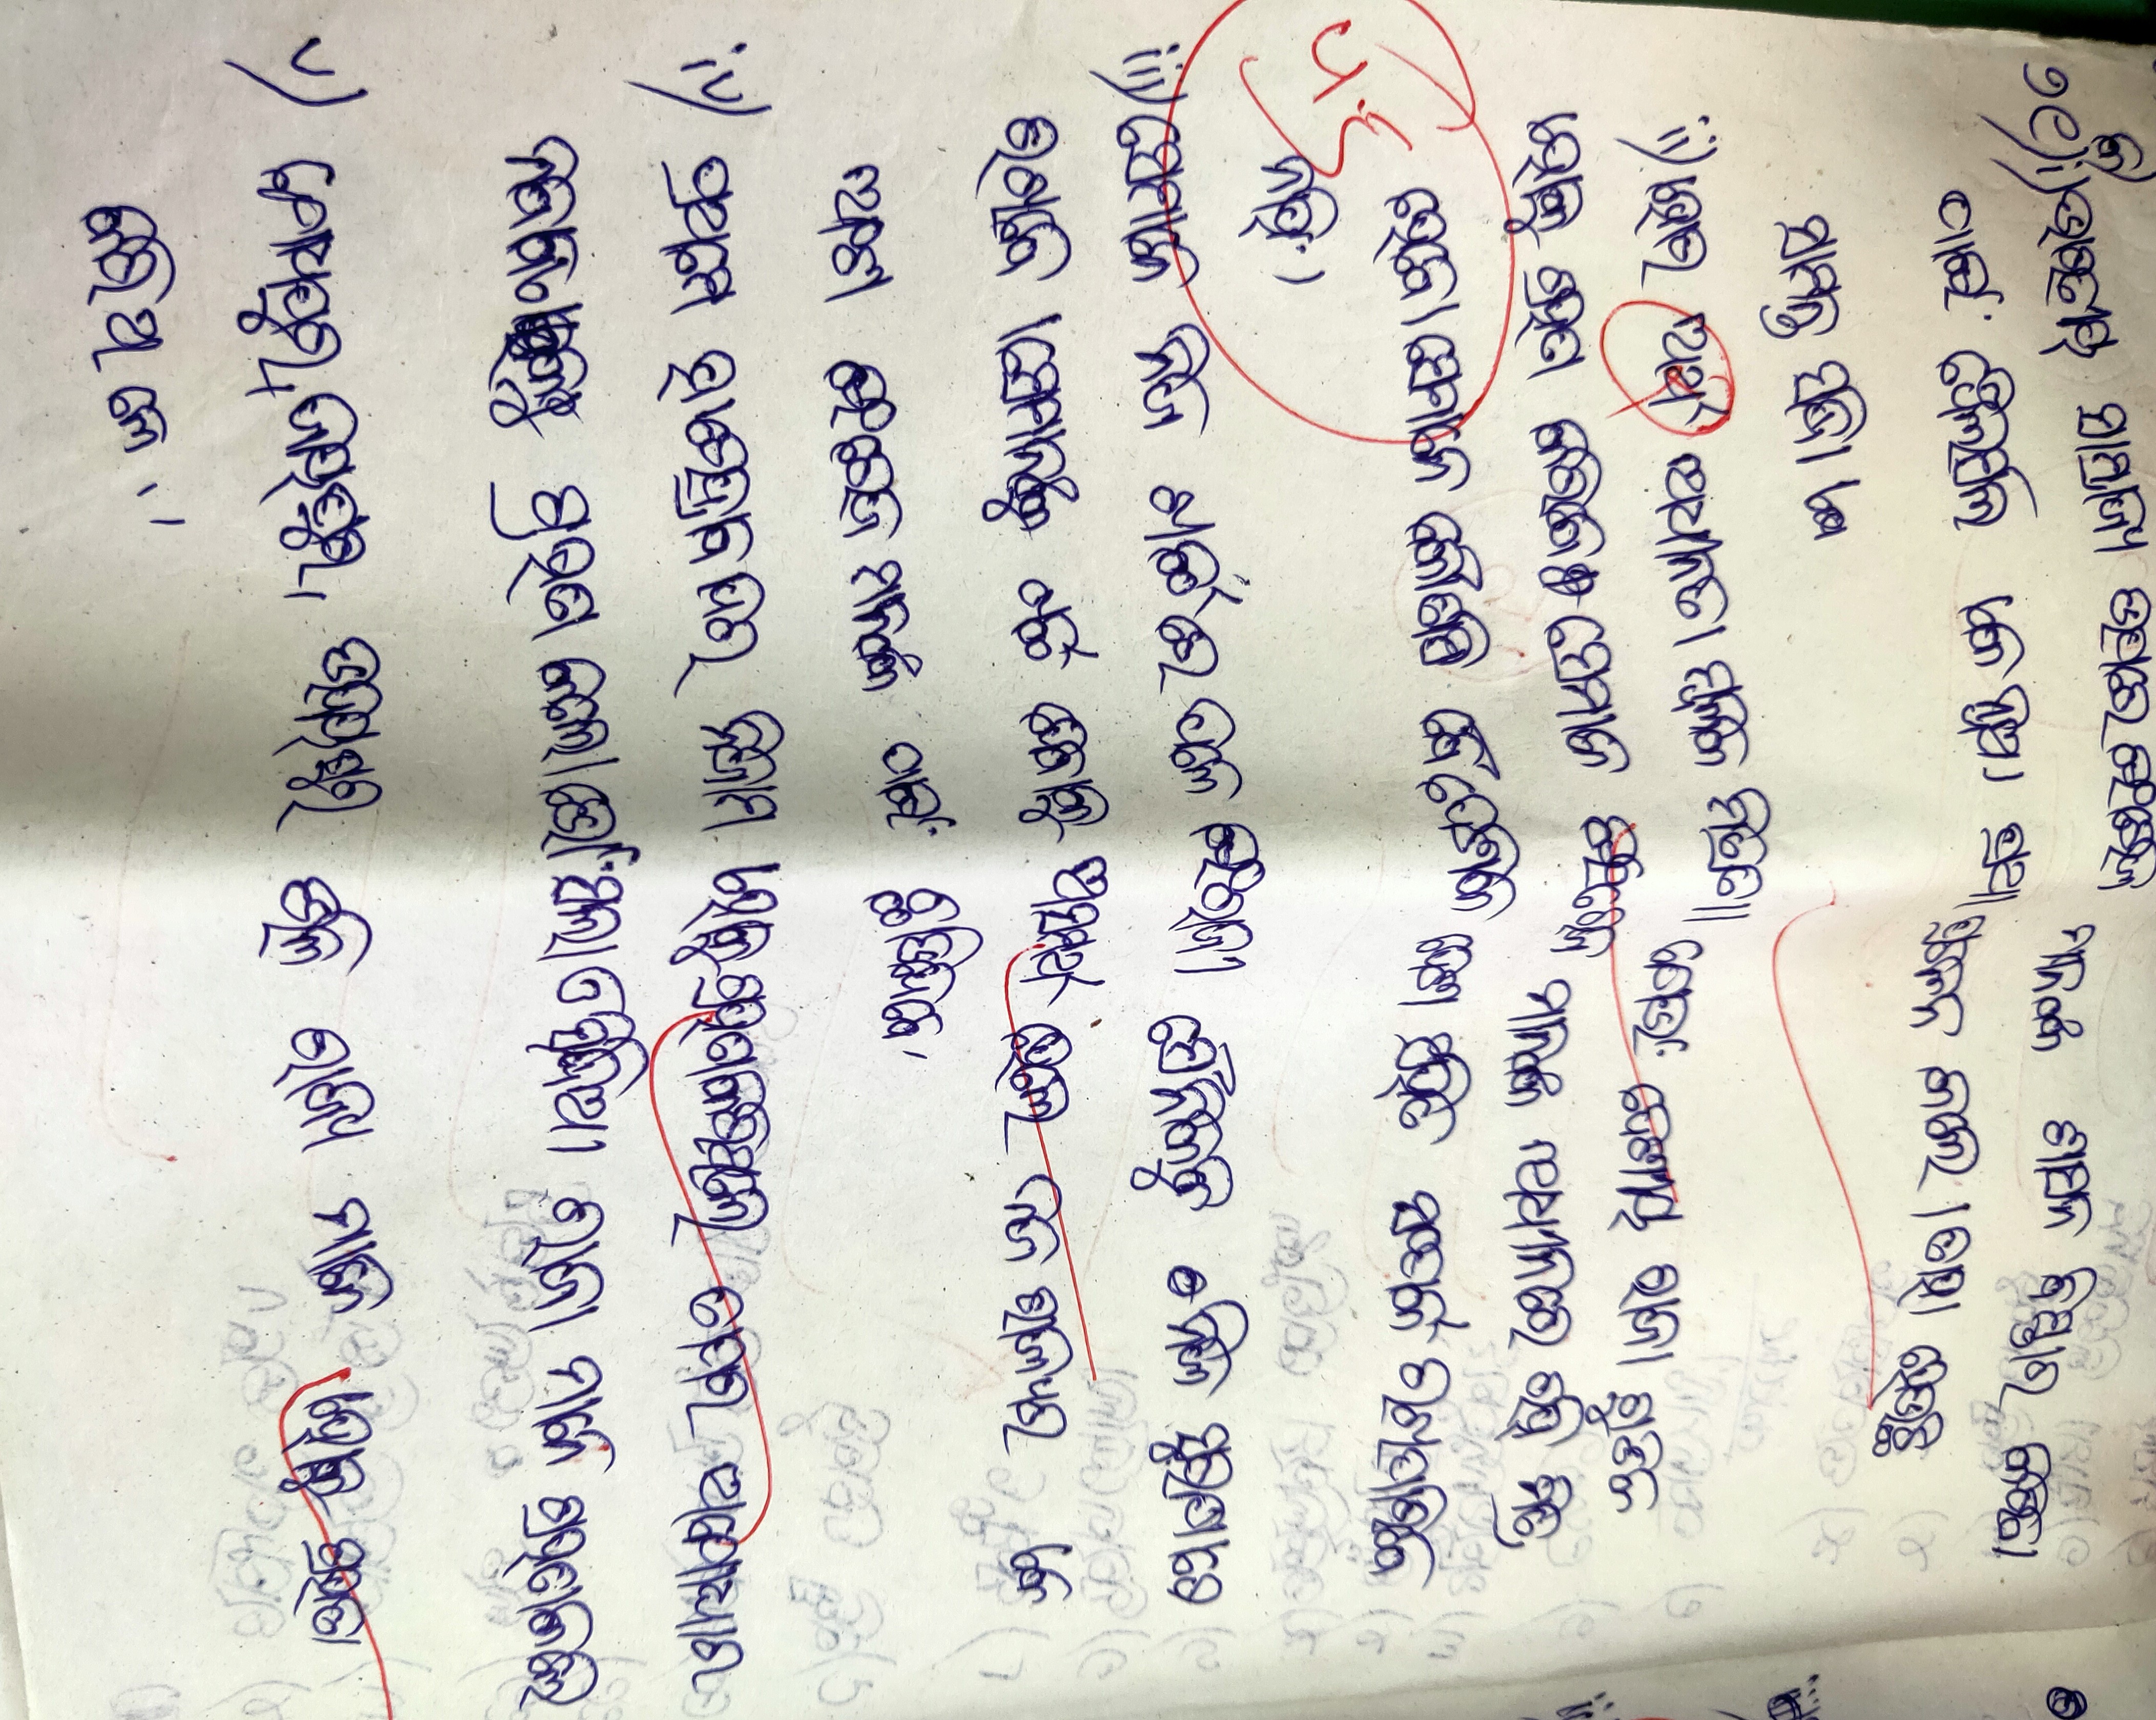 କ
୨୯) i) ଭାରତୀୟ ସାମ୍ରାଜ୍ୟ ଉପରେ ଇଂରେଜ ମାନଙ୍କ ଶାସନ ବିସ୍ତାର କରିବା
ପାଇଁ ୱେଲସଲି ଏକ ନୂଆ ପ୍ରଥା ପ୍ରଚଳନ କଲେ । ତାହା ହେଉଛି
ସାମନ୍ତ ସନ୍ଧି ।
ii) ଏହାର ଅର୍ଥ ଅଧୀନତା ମୂଳକ ମିତ୍ରତା । ଯେଉଁ ଦେଶୀୟ ରାଜା ଗୁଡିକ
ଏହାକୁ ଗ୍ରହଣ କରିବେ ସେମାନେ ଇଂରେଜ ମାନଙ୍କ ଅଧୀନରେ ରହି ମିତ୍ର
ହେବେ । ସେମାନେ କୌଣସି ବୈଦେଶିକ ଦେଶ ସହିତ ସମ୍ପର୍କ ରଖିପାରିବେ
ନାହିଁ ।
iii) ସେମାନେ ନିଜ ଖର୍ଚ୍ଚରେ ଦଳେ ଇଂରାଜୀ ସୈନିକଙ୍କୁ ନିଜ ସୁରକ୍ଷାରେ
ରଖିବେ । ସେମାନଙ୍କୁ ଖର୍ଚ୍ଚ ଦେବାକୁ ଅସମର୍ଥ ହେଲେ ନିଜ ରାଜ୍ୟର ଏକ
ଅଂଶ ଇଂରେଜ ମାନଙ୍କ ପାଇଁ ଛାଡିଦେବେ ।
iv) ପ୍ରଥମେ ହାଇଦ୍ରାବାଦର ନିଜାମ ଏହାକୁ ଗ୍ରହଣ କରିଥିଲେ ତାପରେ ଅଯୋଧ୍ୟାର
ନବାବ ଗ୍ରହଣ କଲେ । ଭୋଁସଲା ଓ ସିନ୍ଧିଆ ରାଜା ମାନେ ଗ୍ରହଣକଲେ
v) ଯୋଧପୁର, ଜୟପୁର, ଉଦୟପୁର ଭଳି ରାଜ୍ୟ ମାନେ ଏହାକୁ ଗ୍ରହଣ
କରିଥିଲେ ।